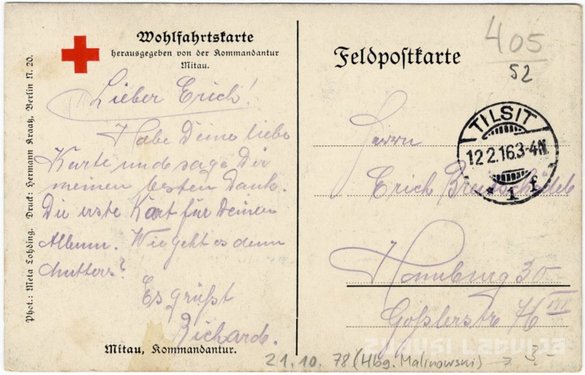 Wohlfahrtskarte
herausgegeben von der Kommandantur
Mitau.
Lieber Erich!
Habe Deine liebe
Karte und sage Dir
meinen besten Dank.
Die erste Kart für Deinen
Album. Wie geht es denn
Mutters?
Es grüßt
Richard.
Mitau, Kommandantur.
Phot.: Meta Lohding. Druck: Hermann Kraatz, Berlin N. 20.
Feldpostkarte
405
52
TILSIT
12.2.16.3-4N.
* 1 f
Herrn
Erich
Hamburg 30
Goßlerstr 76 III
21.10.78 (Hbg. Malinowski)